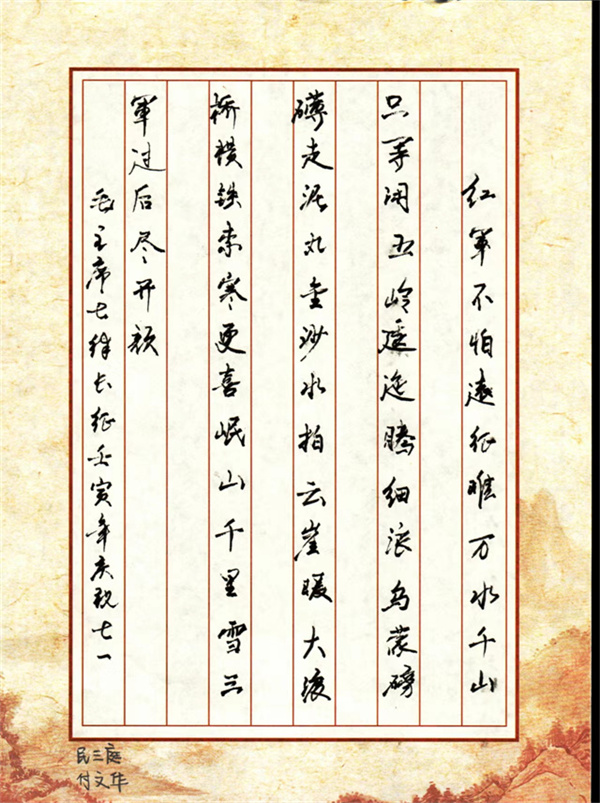 红军不怕远征难万水千山
只等闲五岭逶迤腾细浪乌蒙磅
礴走泥丸金沙水拍云崖暖大渡
桥横铁索寒更喜岷山千里雪三
军过后尽开颜
毛主席七律长征壬寅年庆祝七一
民三庭
付文华